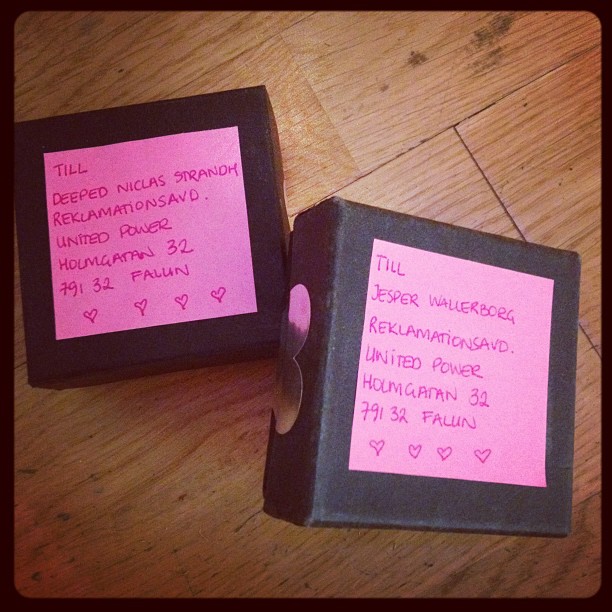 TILL
DEEPED NICLAS STRANDH
REKLAMATIONSAVD.
UNITED POWER
HOLMGATAN 32
791 32 FALUN
TILL
JESPER WALLERBORG
REKLAMATIONSAVD.
UNITED POWER
HOLMGATAN 32
791 32 FALUN